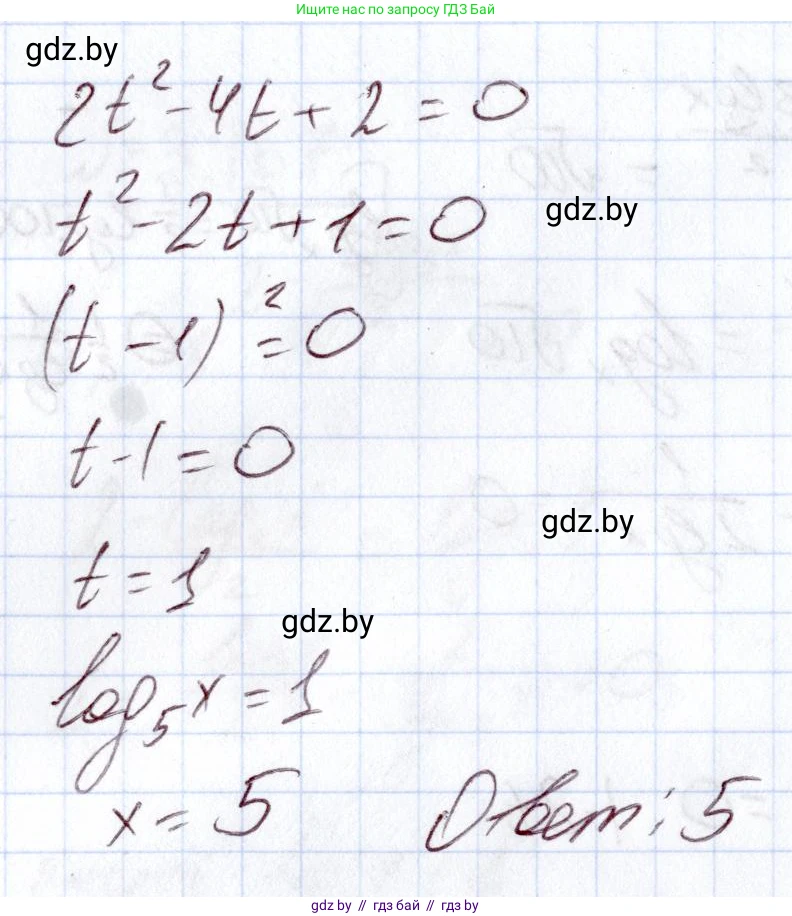 Ищите нас по запросу ГДЗ Бай
gdz.by
2t² - 4t + 2 = 0
t² - 2t + 1 = 0
gdz.by
(t - 1)² = 0
t - 1 = 0
gdz.by
t = 1
gdz.by
log₅x = 1
x = 5 Ответ: 5
gdz.by // гдз бай // gdz.by